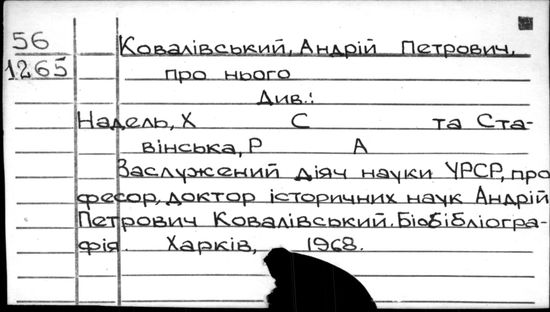 56
1265
Ковалівський, Андрій Петрович.
про нього
Див.:
Надель, Х С та Ста-
вінська, Р А
Заслужений діяч науки УРСР, про
фесор, доктор історичних наук Андрій
Петрович Ковалівський. Біобібліогра-
фія. Харків, 1968.